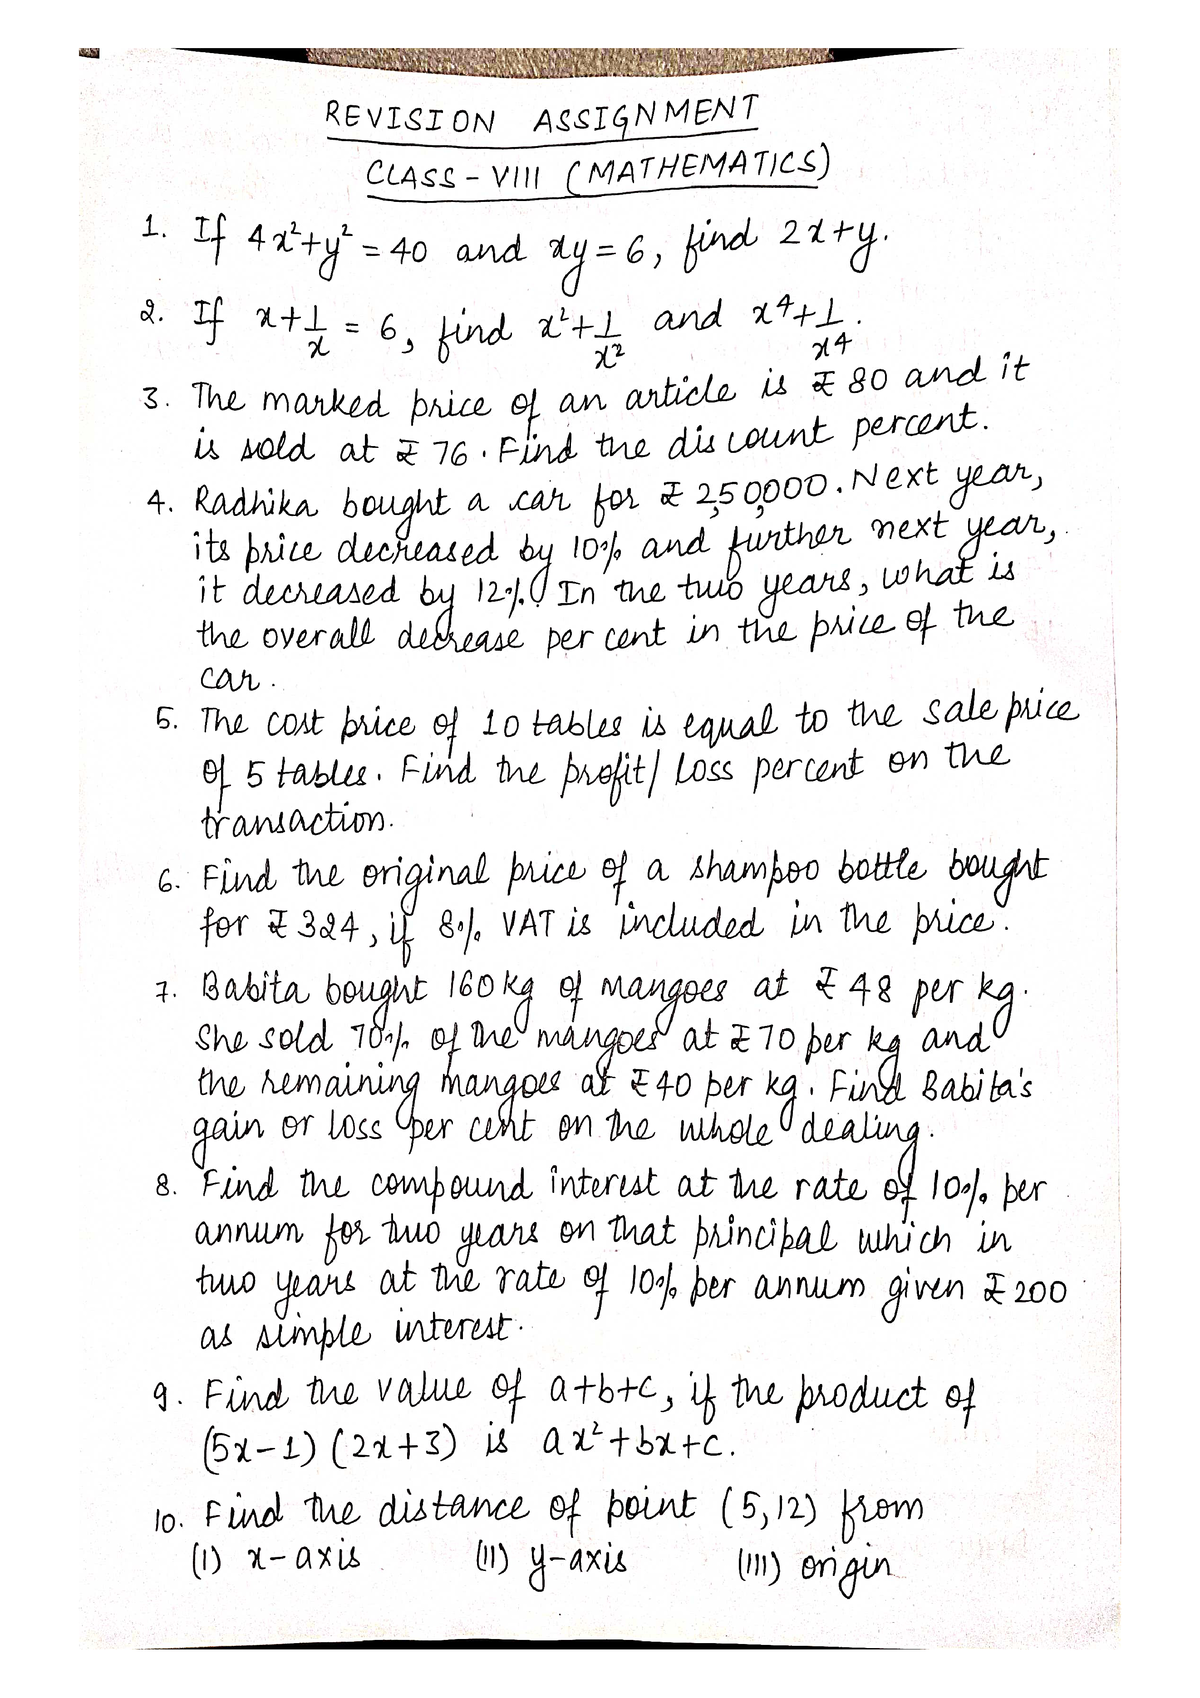 REVISION ASSIGNMENT
CLASS - VIII (MATHEMATICS)
1. If 4x²+y² = 40 and xy = 6, find 2x+y.
2. If x+1/x = 6, find x²+1/x² and x⁴+1/x⁴.
3. The marked price of an article is ₹ 80 and it
is sold at ₹ 76. Find the discount percent.
4. Radhika bought a car for ₹ 2,50,000. Next year,
its price decreased by 10% and further next year,
it decreased by 12%. In the two years, what is
the overall decrease per cent in the price of the
car.
5. The cost price of 10 tables is equal to the sale price
of 5 tables. Find the profit/ loss percent on the
transaction.
6. Find the original price of a shampoo bottle bought
for ₹ 324, if 8% VAT is included in the price.
7. Babita bought 160 kg of mangoes at ₹ 48 per kg.
She sold 70% of the mangoes at ₹ 70 per kg and
the remaining mangoes at ₹ 40 per kg. Find Babita's
gain or loss per cent on the whole dealing.
8. Find the compound interest at the rate of 10% per
annum for two years on that principal which in
two years at the rate of 10% per annum given ₹ 200
as simple interest.
9. Find the value of a+b+c, if the product of
(5x-1) (2x+3) is ax²+bx+c.
10. Find the distance of point (5,12) from
(I) x-axis (II) y-axis (III) origin